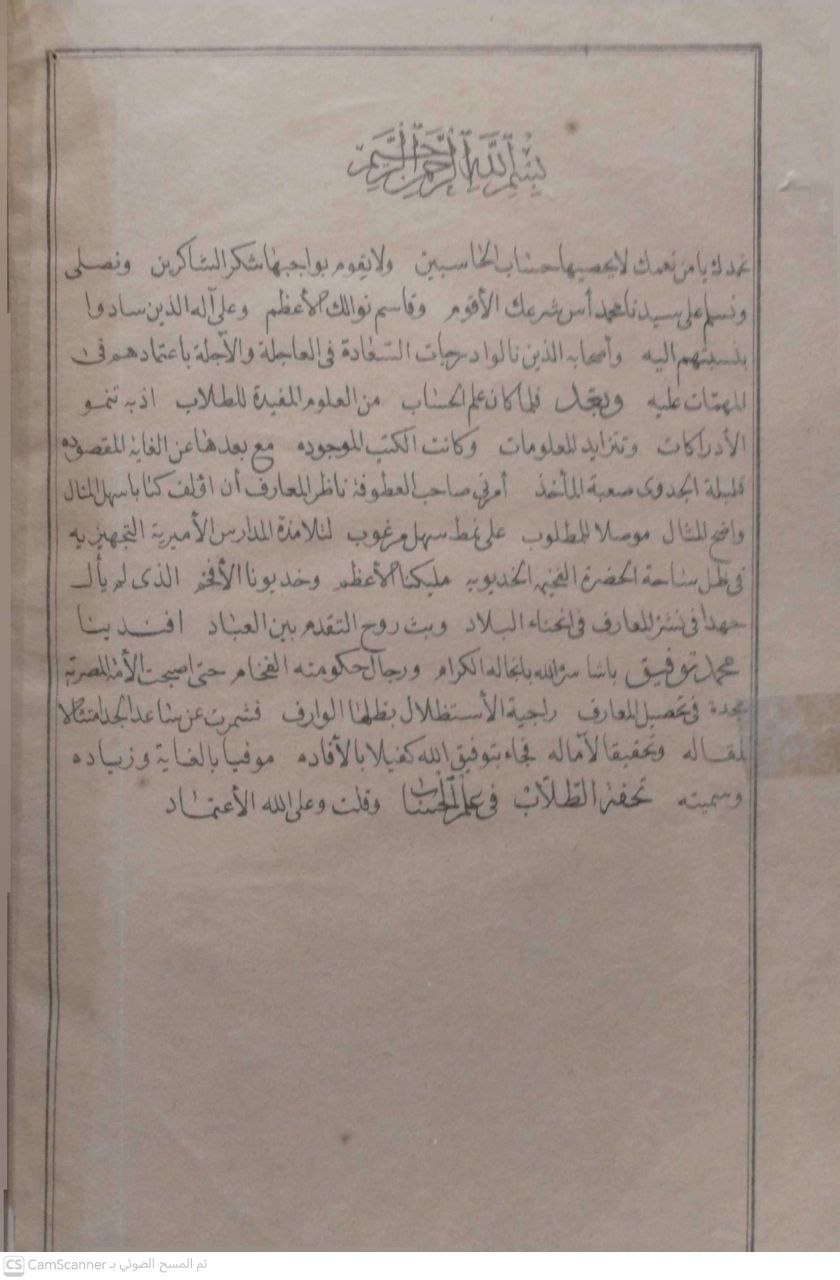 بسم الله الرحمن الرحيم
نحمدك يا من نعمك لا يحصيها حساب الحاسبين ولا يقوم بواجبها شكر الشاكرين ونصلى
ونسلم على سيدنا محمد أس شرعك الأقوم وقاسم نوالك الأعظم وعلى آله الذين سادوا
بنسبتهم اليه وأصحابه الذين نالوا درجات السعادة فى العاجلة والآجلة باعتمادهم فى
المهمات عليه وبعد فلما كان علم الحساب من العلوم المفيدة للطلاب اذ به تنمو
الأدراكات وتتزايد المعلومات وكانت الكتب الموجوده مع بعدها عن الغاية المقصوده
قليلة الجدوى صعبة المأخذ أمرنى صاحب العطوفة ناظر المعارف أن اؤلف كتابا سهل المنال
واضح المثال موصلا للمطلوب على نمط سهل مرغوب لتلامذة المدارس الأميرية التجهيزيه
فى ظل ساحة الحضرة الفخيمه الخديويه مليكنا الأعظم وخديونا الأفخم الذى لم يأل
جهدا فى نشر المعارف فى انحاء البلاد وبث روح التقدم بين العباد افندينا
محمد توفيق باشا سره الله بانجاله الكرام ورجال حكومته الفخام حتى اصبحت الأمة المصرية
مجدة فى تحصيل المعارف راجية الأستظلال بظلها الوارف فشمرت عن ساعد الجد امتثالا
لمقاله وتحقيقا لآماله فجاء بتوفيق الله كفيلا بالأفاده موفيا بالغاية وزياده
وسميته تحفة الطلاب فى علم الحساب وقلت وعلى الله الأعتماد
CS CamScanner تم المسح الضوئي بـ